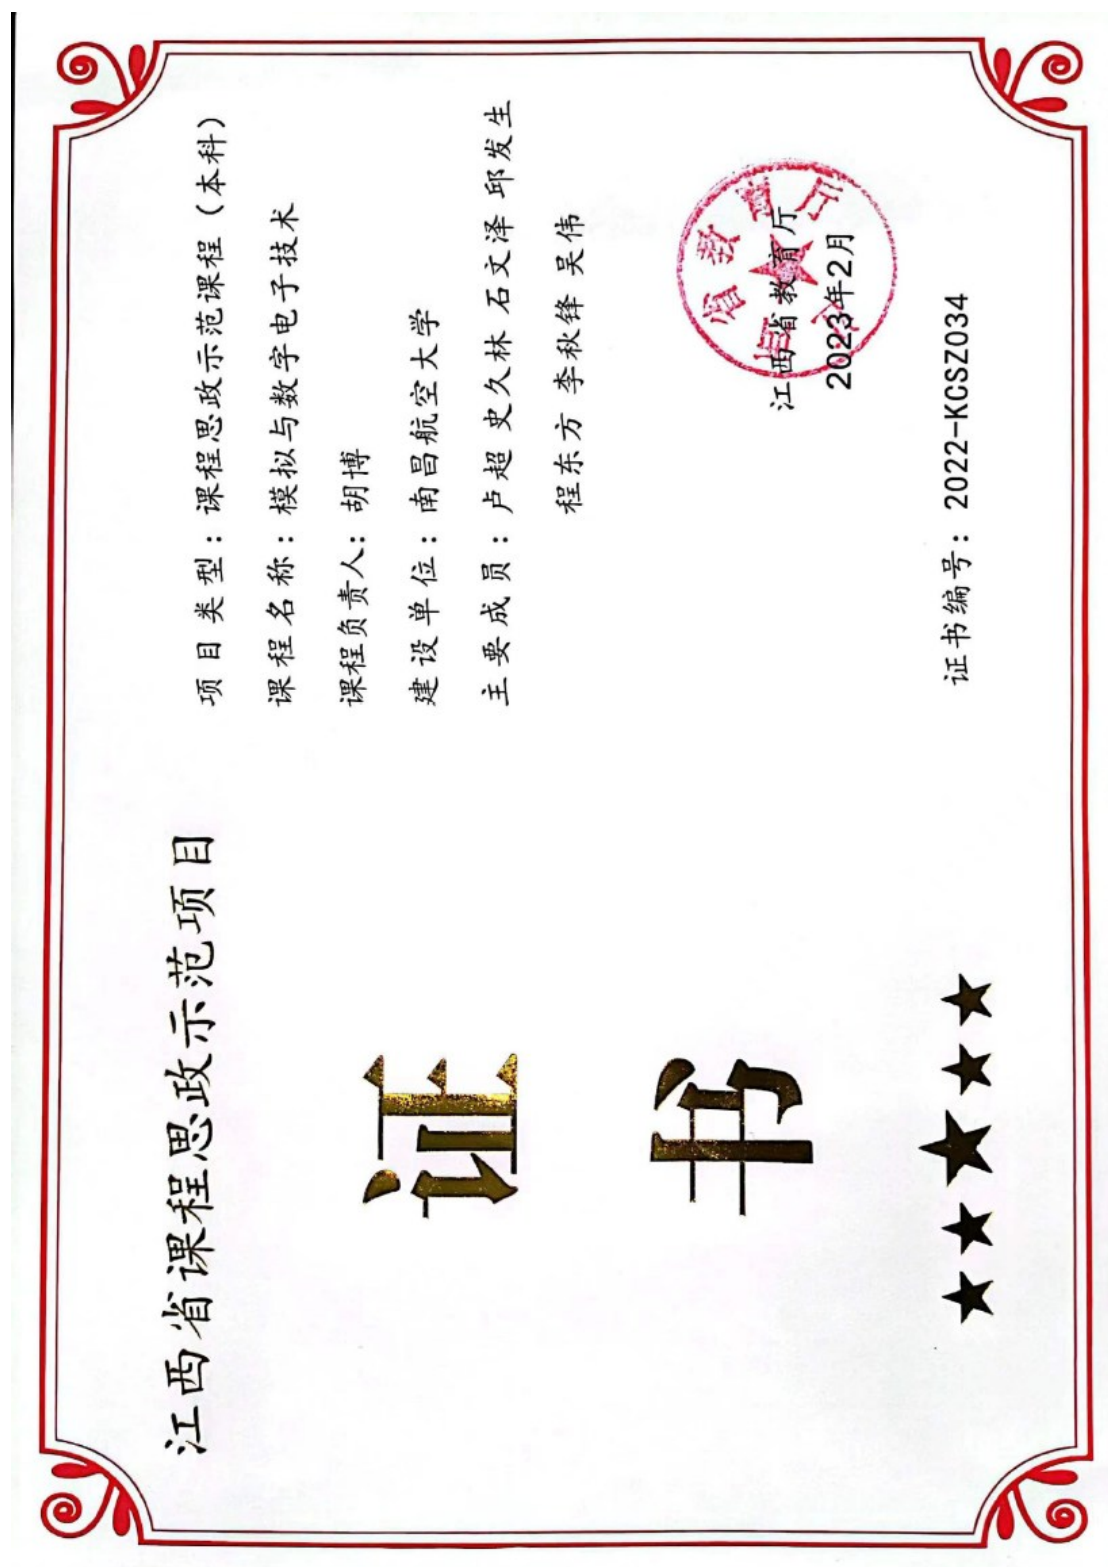 江西省课程思政示范项目
证
书
项目类型：课程思政示范课程（本科）
课程名称：模拟与数字电子技术
课程负责人：胡博
建设单位：南昌航空大学
主要成员：卢超 史久林 石文泽 邱发生
程东方 李秋锋 吴伟
江西省教育厅
2023年2月
证书编号：2022-KCSZ034